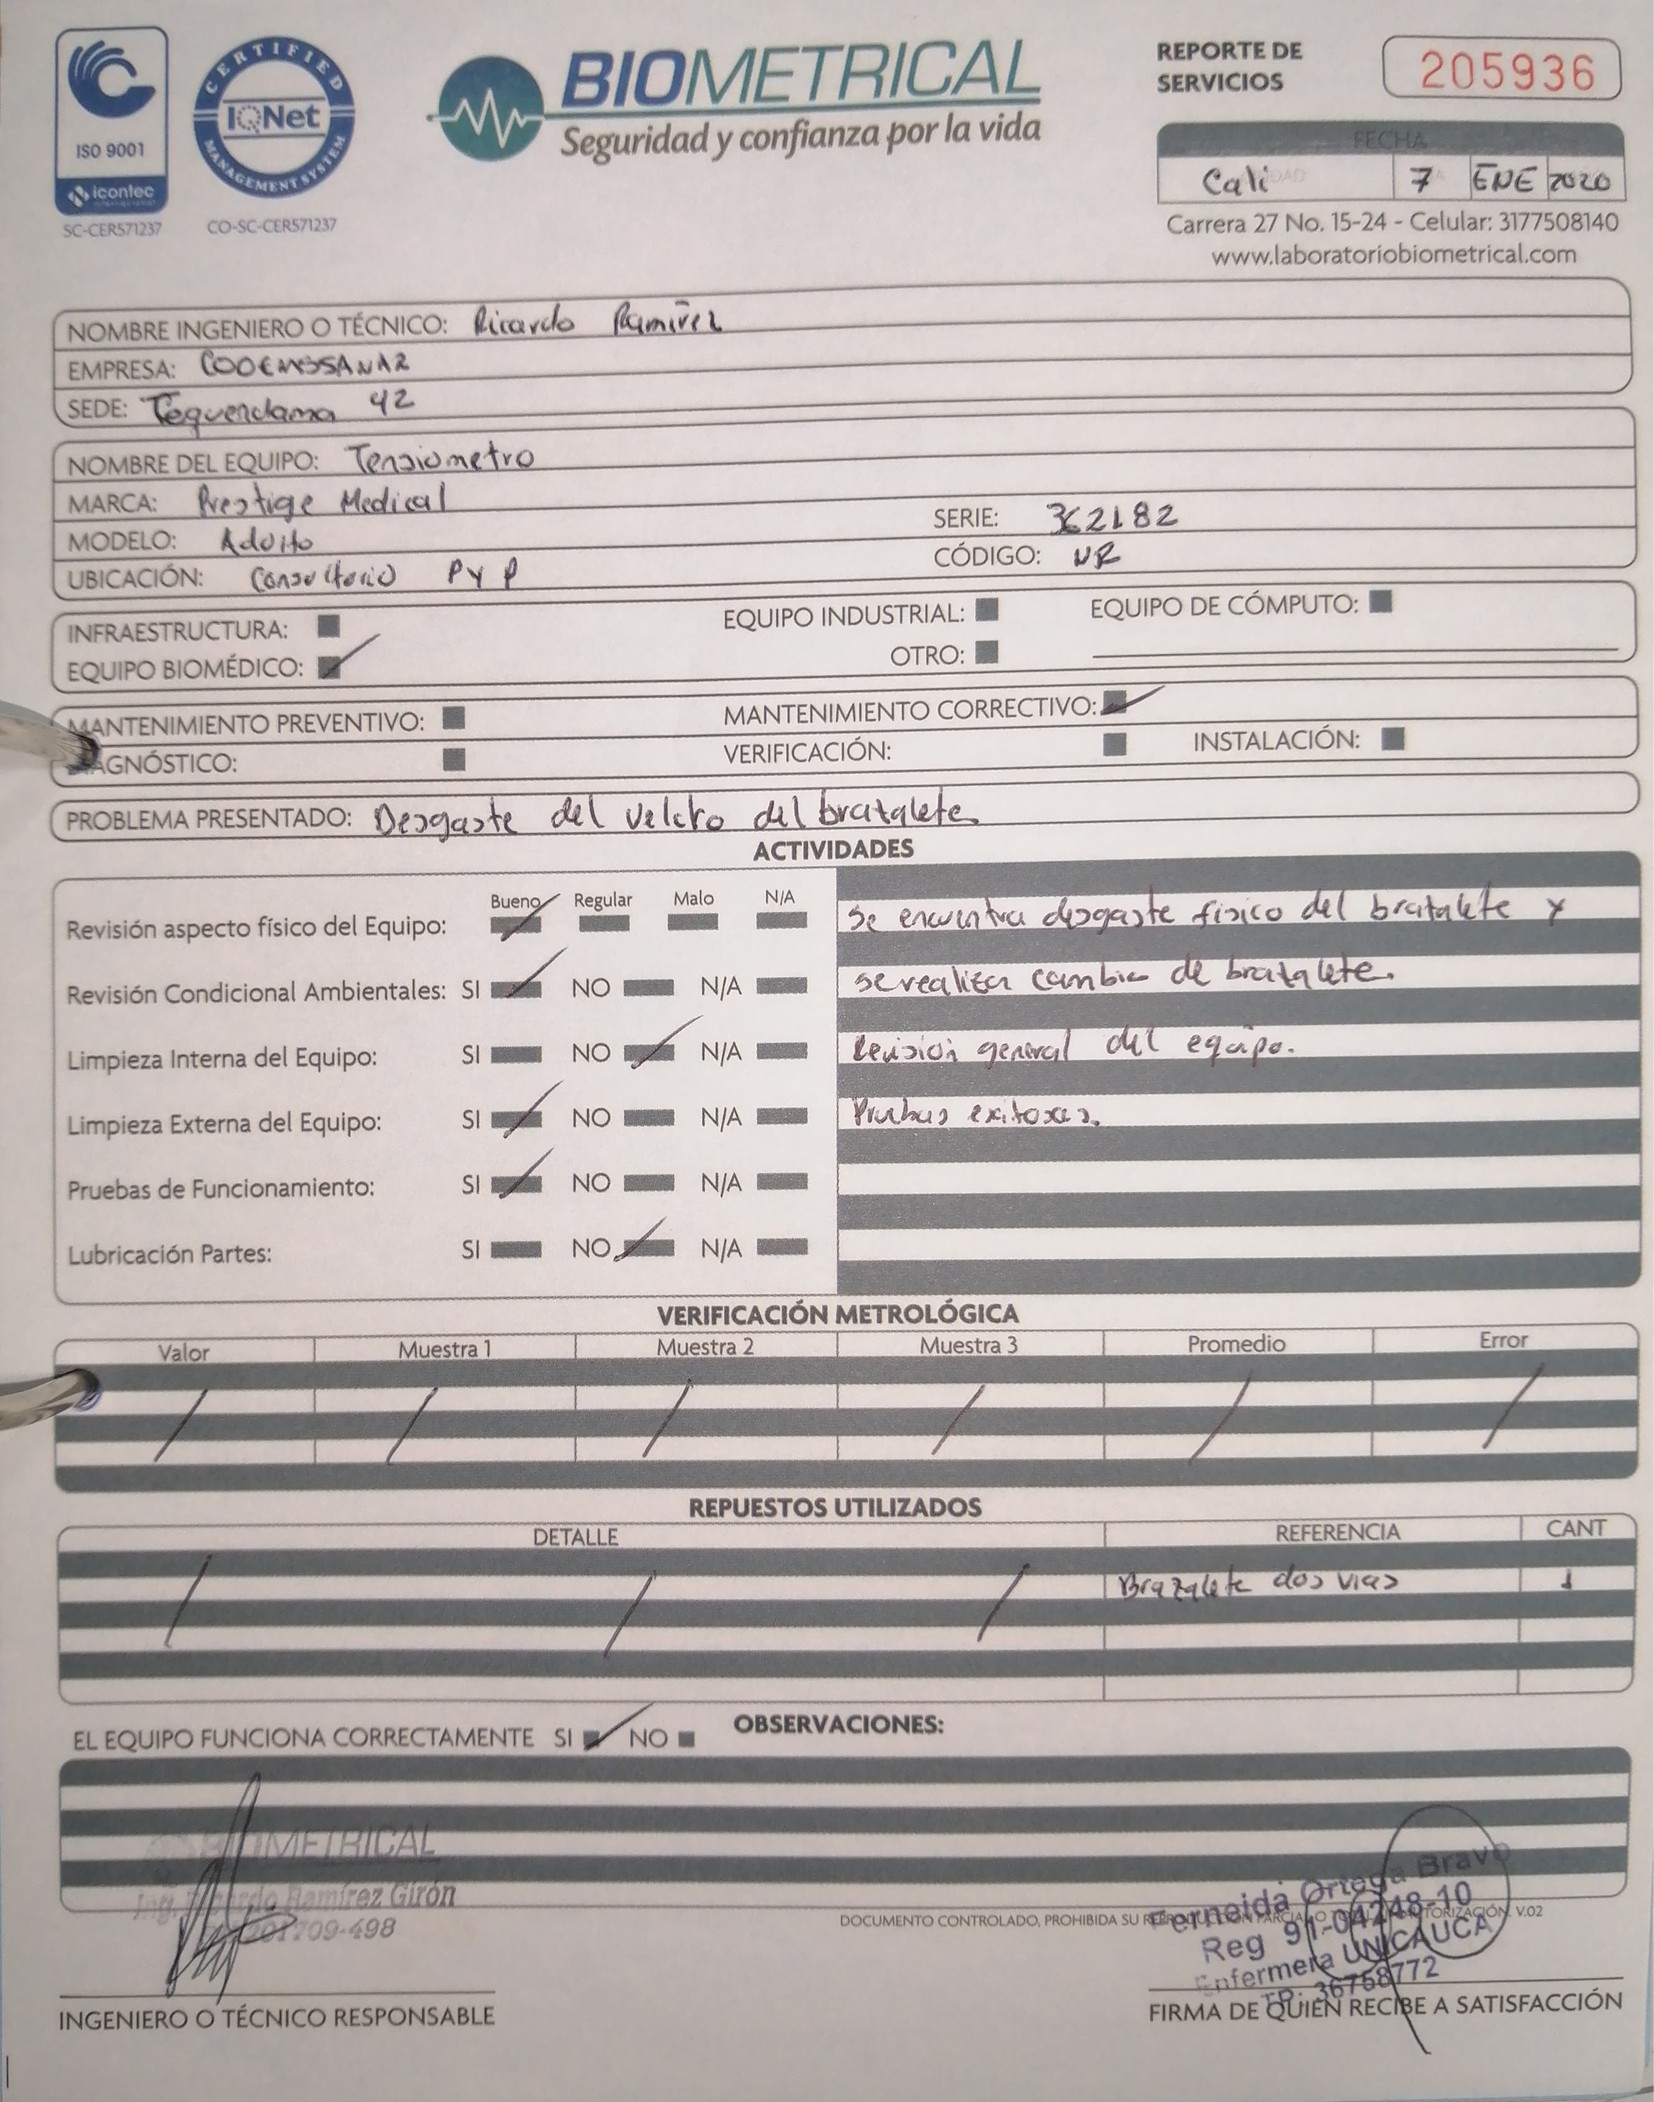 ISO 9001
icontec
SC-CER571237
CERTIFIED
IQNet
MANAGEMENT SYSTEM
CO-SC-CER571237
BIOMETRICAL
Seguridad y confianza por la vida
REPORTE DE SERVICIOS 205936
FECHA
Cali 7 ENE 2020
Carrera 27 No. 15-24 - Celular: 3177508140
www.laboratoriobiometrical.com
NOMBRE INGENIERO O TÉCNICO: Ricardo Ramirez
EMPRESA: COOEMSSANAR
SEDE: Tequendama 42
NOMBRE DEL EQUIPO: Tensiometro
MARCA: Prestige Medical
SERIE: 362182
MODELO: Adulto
CÓDIGO: NR
UBICACIÓN: Consultorio PYP
INFRAESTRUCTURA: EQUIPO INDUSTRIAL: EQUIPO DE CÓMPUTO:
EQUIPO BIOMÉDICO: OTRO:
MANTENIMIENTO PREVENTIVO: MANTENIMIENTO CORRECTIVO:
DIAGNÓSTICO: VERIFICACIÓN: INSTALACIÓN:
PROBLEMA PRESENTADO: Desgaste del velcro del brazalete
ACTIVIDADES
Bueno Regular Malo N/A
Revisión aspecto físico del Equipo:
Se encuentra desgaste fisico del brazalete y
Revisión Condicional Ambientales: SI NO N/A
se realiza cambio de brazalete.
Limpieza Interna del Equipo: SI NO N/A
Revisión general del equipo.
Limpieza Externa del Equipo: SI NO N/A
Pruebas exitosas.
Pruebas de Funcionamiento: SI NO N/A
Lubricación Partes: SI NO N/A
VERIFICACIÓN METROLÓGICA
Valor Muestra 1 Muestra 2 Muestra 3 Promedio Error
REPUESTOS UTILIZADOS
DETALLE REFERENCIA CANT
Brazalete dos vias 1
EL EQUIPO FUNCIONA CORRECTAMENTE SI NO OBSERVACIONES:
BIOMETRICAL
Ing. Ricardo Ramírez Girón
709-498
DOCUMENTO CONTROLADO, PROHIBIDA SU REPRODUCCIÓN PARCIAL O AUTORIZACIÓN. V.02
Ferneida Ortega Bravo
Reg 91-04248-10
Enfermera UNICAUCA
TP: 36758772
INGENIERO O TÉCNICO RESPONSABLE
FIRMA DE QUIEN RECIBE A SATISFACCIÓN